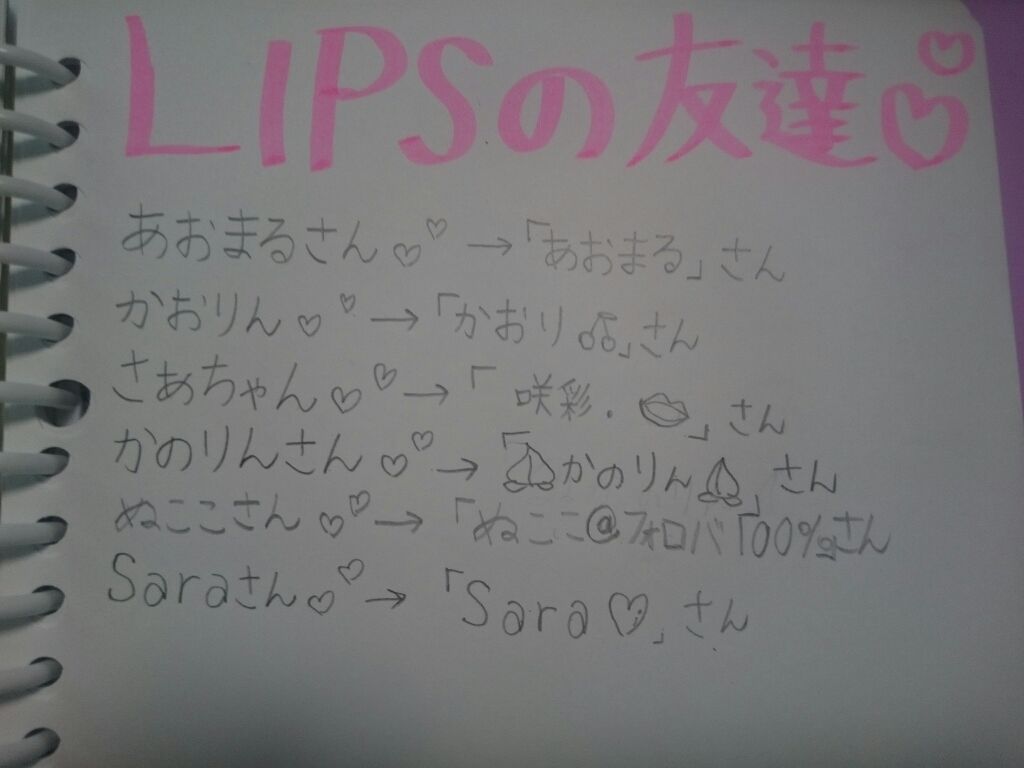 LIPSの友達♡♡
あおまるさん♡♡→「あおまる」さん
かおりん♡♡→「かおり🍒」さん
さあちゃん♡♡→「咲彩.💋」さん
かのりんさん♡♡→「かのりん」さん
ぬここさん♡♡→「ぬここ@フォロバ100%」さん
Saraさん♡♡→「Sara♡」さん